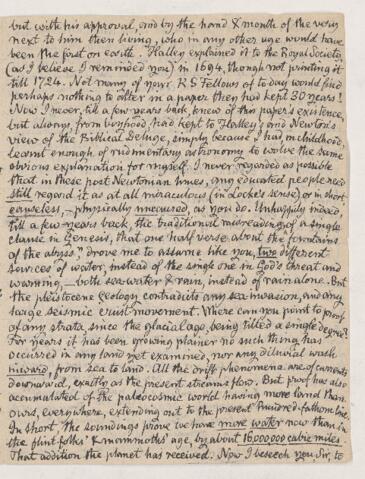 but with his approval, and by the hand & mouth of the very
next to him then living, who in any other age would have
been the first on earth. Halley explained it to the Royal Society,
(as I believe I reminded you) in 1694, though not printing it
till 1724. Not many of your R S Fellows of to day would find
perhaps nothing to alter in a paper then had kept 30 years!
Now I never, till a few years back, knew of this paper's existence,
but always, from boyhood, had kept to Halley's and Newton's
view of the Biblical Deluge, simply because I had in childhood
learnt enough of rudimentary astronomy to solve the same
obvious explanation for myself. I never regarded as possible
that in these post Newtonian times, any educated people need
still regard it as at all miraculous (in Locke's sense) or in short
causeless, — physically uncaused, as you do. Unhappily indeed,
till a few years back, the traditional misreading of a single
clause in Genesis, that one half verse about the "fountains
of the abyss," drove me to assume like you, two different
sources of water, instead of the single one in God's threat and
warning, — both sea-water & rain, instead of rain alone. But
the pleistocene geology contradicts any sea-invasion, and any
large seismic crust movement. Where can you point to proof
of any strata since the glacial age, being tilted a single degree?
For years it has been growing plainer no such thing has
occurred in any land yet examined, nor any diluvial wash
inward, from sea to land. All the drift phenomena are of currents
downward, exactly as the present streams flow. But proof has also
accumulated of the palaeocosmic world having more land than
ours, everywhere, extending out to the present hundred-fathom line.
In short, the soundings prove we have more water now than in
the flint-folks' & mammoths' age, by about 16,000,000 cubic miles
That addition the planet has received. Now I beseech you Sir, to